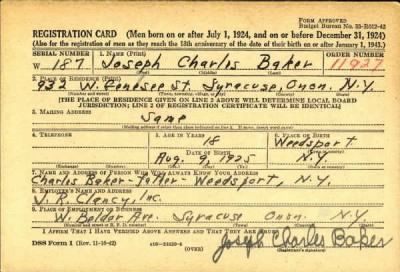 FORM APPROVED
Budget Bureau No. 33-R012-42
REGISTRATION CARD (Men born on or after July 1, 1924, and on or before December 31, 1924)
(Also for the registration of men as they reach the 18th anniversary of the date of their birth on or after January 1, 1943.)
SERIAL NUMBER 1. NAME (Print) ORDER NUMBER
W 187 Joseph Charles Baker 11927
(First) (Middle) (Last)
2. PLACE OF RESIDENCE (Print)
932 W. Genesee St. Syracuse, Onon. N.Y.
(Number and street) (Town, township, village, or city) (County) (State)
[THE PLACE OF RESIDENCE GIVEN ON LINE 2 ABOVE WILL DETERMINE LOCAL BOARD
JURISDICTION; LINE 2 OF REGISTRATION CERTIFICATE WILL BE IDENTICAL]
3. MAILING ADDRESS
Same
[Mailing address if other than place indicated on line 2. If same, insert word same]
4. TELEPHONE 5. AGE IN YEARS 6. PLACE OF BIRTH
18 Weedsport
DATE OF BIRTH
Aug. 9, 1925 N.Y.
(Exchange) (Number) (Mo.) (Day) (Yr.) (State or country)
7. NAME AND ADDRESS OF PERSON WHO WILL ALWAYS KNOW YOUR ADDRESS
Charles Baker-father-Weedsport, N.Y.
8. EMPLOYER'S NAME AND ADDRESS
J. R. Clancy, Inc.
9. PLACE OF EMPLOYMENT OR BUSINESS
W. Belden Ave. Syracuse Onon. N.Y.
(Number and street or R. F. D. number) (Town) (County) (State)
I AFFIRM THAT I HAVE VERIFIED ABOVE ANSWERS AND THAT THEY ARE TRUE.
DSS Form 1 (Rev. 11-16-42) (OVER) Joseph Charles Baker